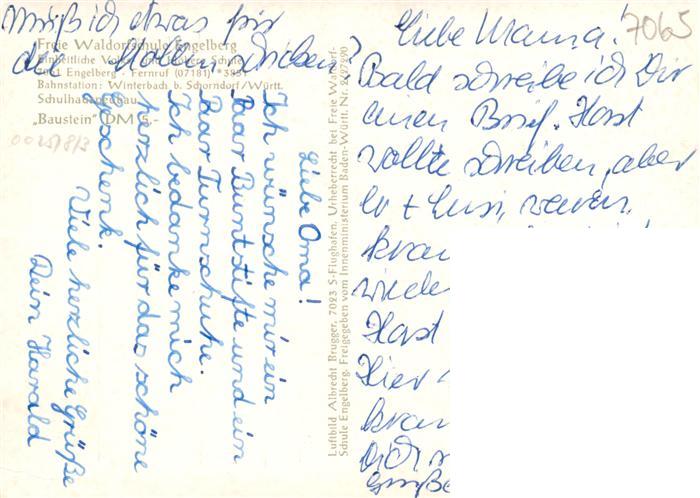 Muß ich etwas für
die Stollen schicken?
Freie Waldorfschule Engelberg
Einheitliche Volks- und Höhere Schule
7061 Engelberg - Fernruf (07181) *3851
Bahnstation: Winterbach b. Schorndorf/Württ.
Schulhausneubau
„Baustein“ DM 5.-
Liebe Oma!
Ich wünsche mir ein
Paar Buntstifte und ein
Paar Turnschuhe.
Ich bedanke mich
herzlich für das schöne
Geschenk.
Viele herzliche Grüße
Dein Harald
Luftbild Albrecht Brugger, 7023 S-Flughafen, Urheberrecht bei Freie Waldorf-
Schule Engelberg. Freigegeben vom Innenministerium Baden-Württ. Nr. 2/27290
7065
Liebe Mama!
Bald schreibe ich Dir
einen Brief. Horst
wollte schreiben, aber
Er + Susi, waren
kran
wiede
Horst
Hier
kran
Dich
Grüße